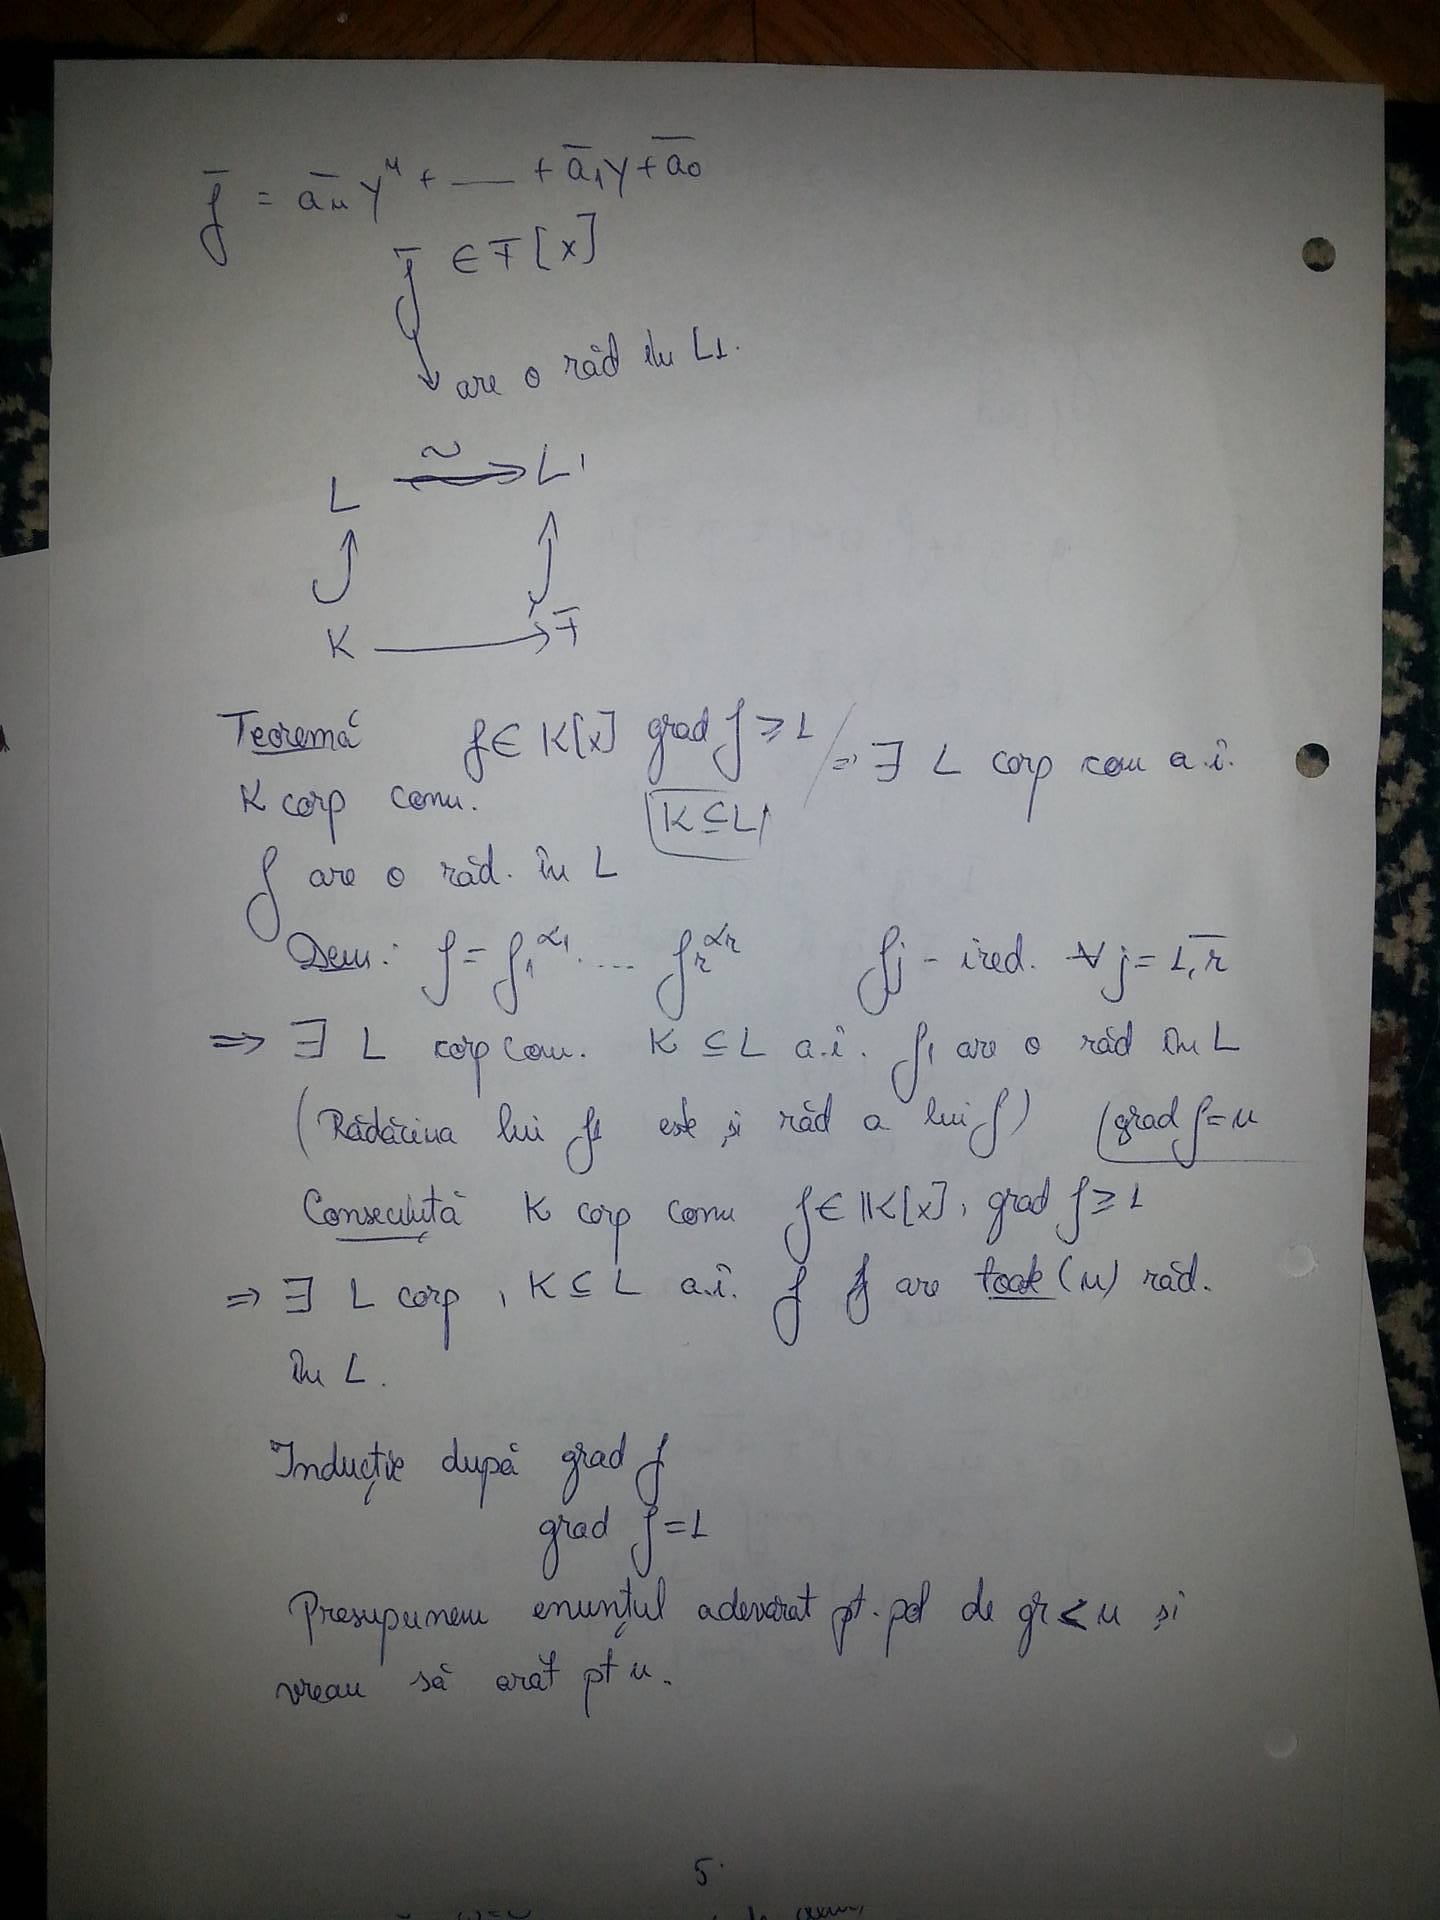 f̄ = ā_n y^n + — + ā₁y + ā₀
f̄ ∈ F̄[x]
are o răd în L1.
L ~→ L'
K → F̄
Teoremă f ∈ K[x] grad f ≥ 1 / => ∃ L corp com a.î.
K corp comu. K ⊆ L
f are o răd. în L
Dem: f = f₁^α₁ . ... f_r^α_r fj - ired. ∀ j = 1,r̄
=> ∃ L corp com. K ⊆ L a.î. f₁ are o răd în L
(Rădăcina lui f1 este și răd a lui f) (grad f = n
Consecință K corp comu f ∈ K[x], grad f ≥ 1
=> ∃ L corp, K ⊆ L a.î. f f are toate (n) răd.
în L.
Inducție după grad f
grad f = 1
Presupunem enunțul adevarat pt. pol de gr < n și
vreau să arăt pt n.
5.